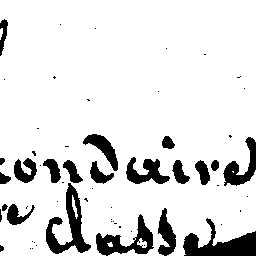 condaire
re classe